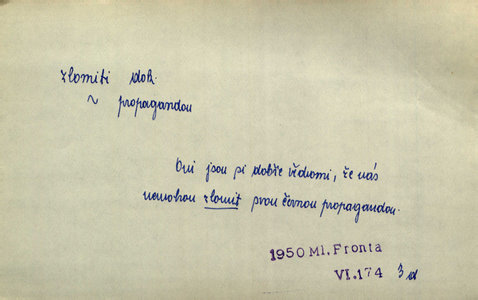 zlomiti dok.
~ propagandou
Oni jsou si dobře vědomi, že nás
nemohou zlomit svou černou propagandou.
1950 Ml. Fronta
VI.174 3 d